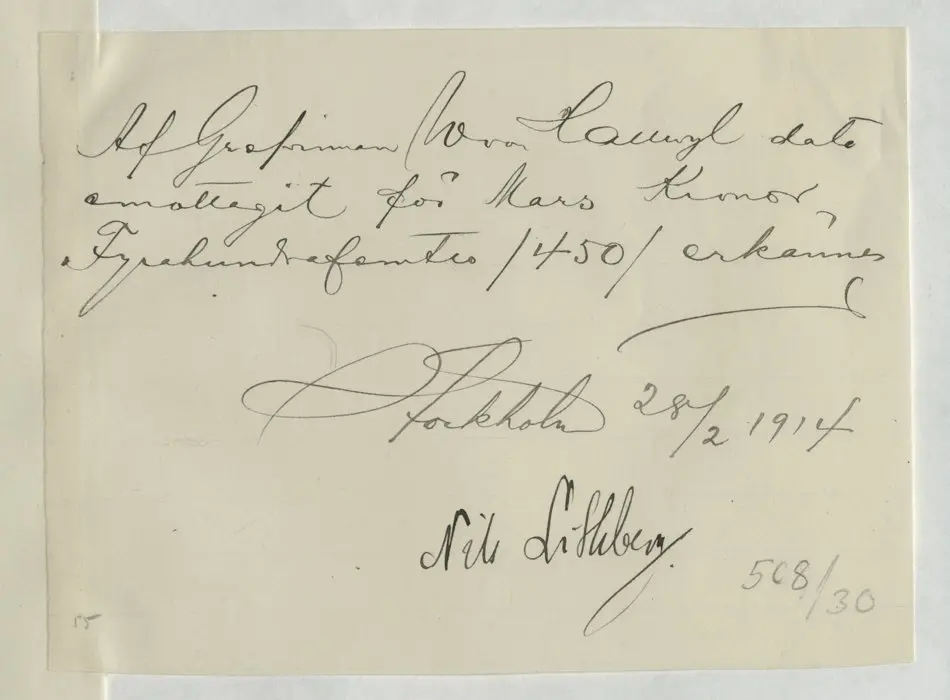 Af Grefvinnan W von Hallwyl dato
emottagit för Mars Kronor,
Fyrahundrafemtio /450/ erkännes
Stockholm 28/2 1914
Nils Lithberg.
508/30
55